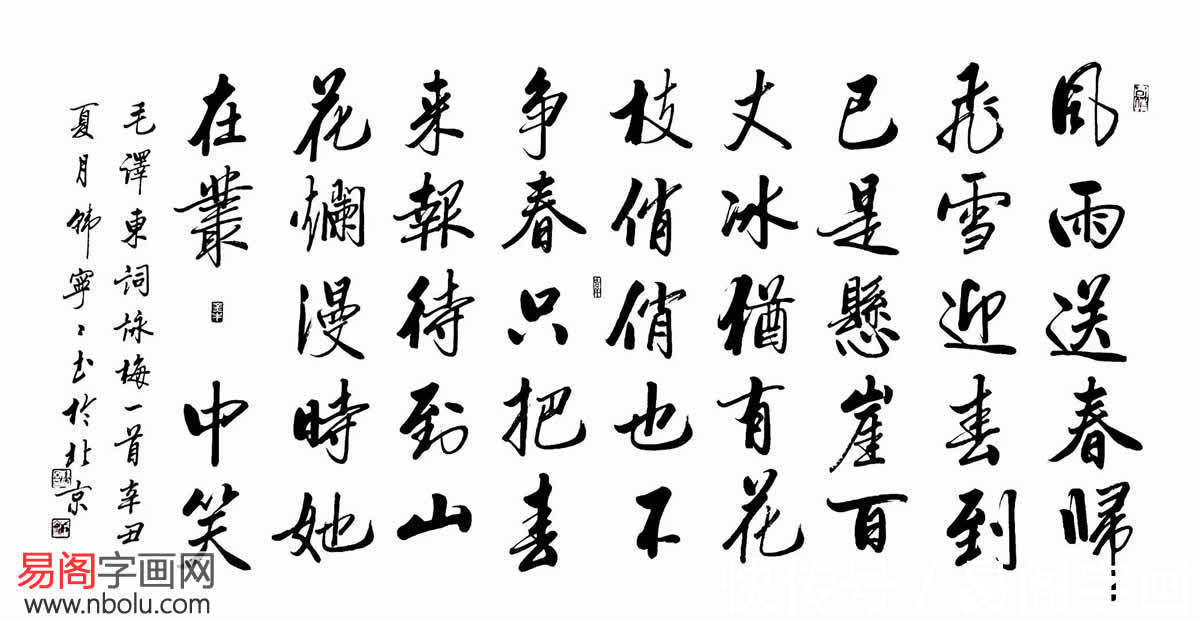 風雨送春歸
飛雪迎春到
已是懸崖百
丈冰猶有花
枝俏俏也不
争春只把春
来報待到山
花爛漫時她
在叢中笑
毛澤東詞詠梅一首辛丑
夏月韩寧〻书於北京
易阁字画网
www.nbolu.com
快传号 / 易阁字画